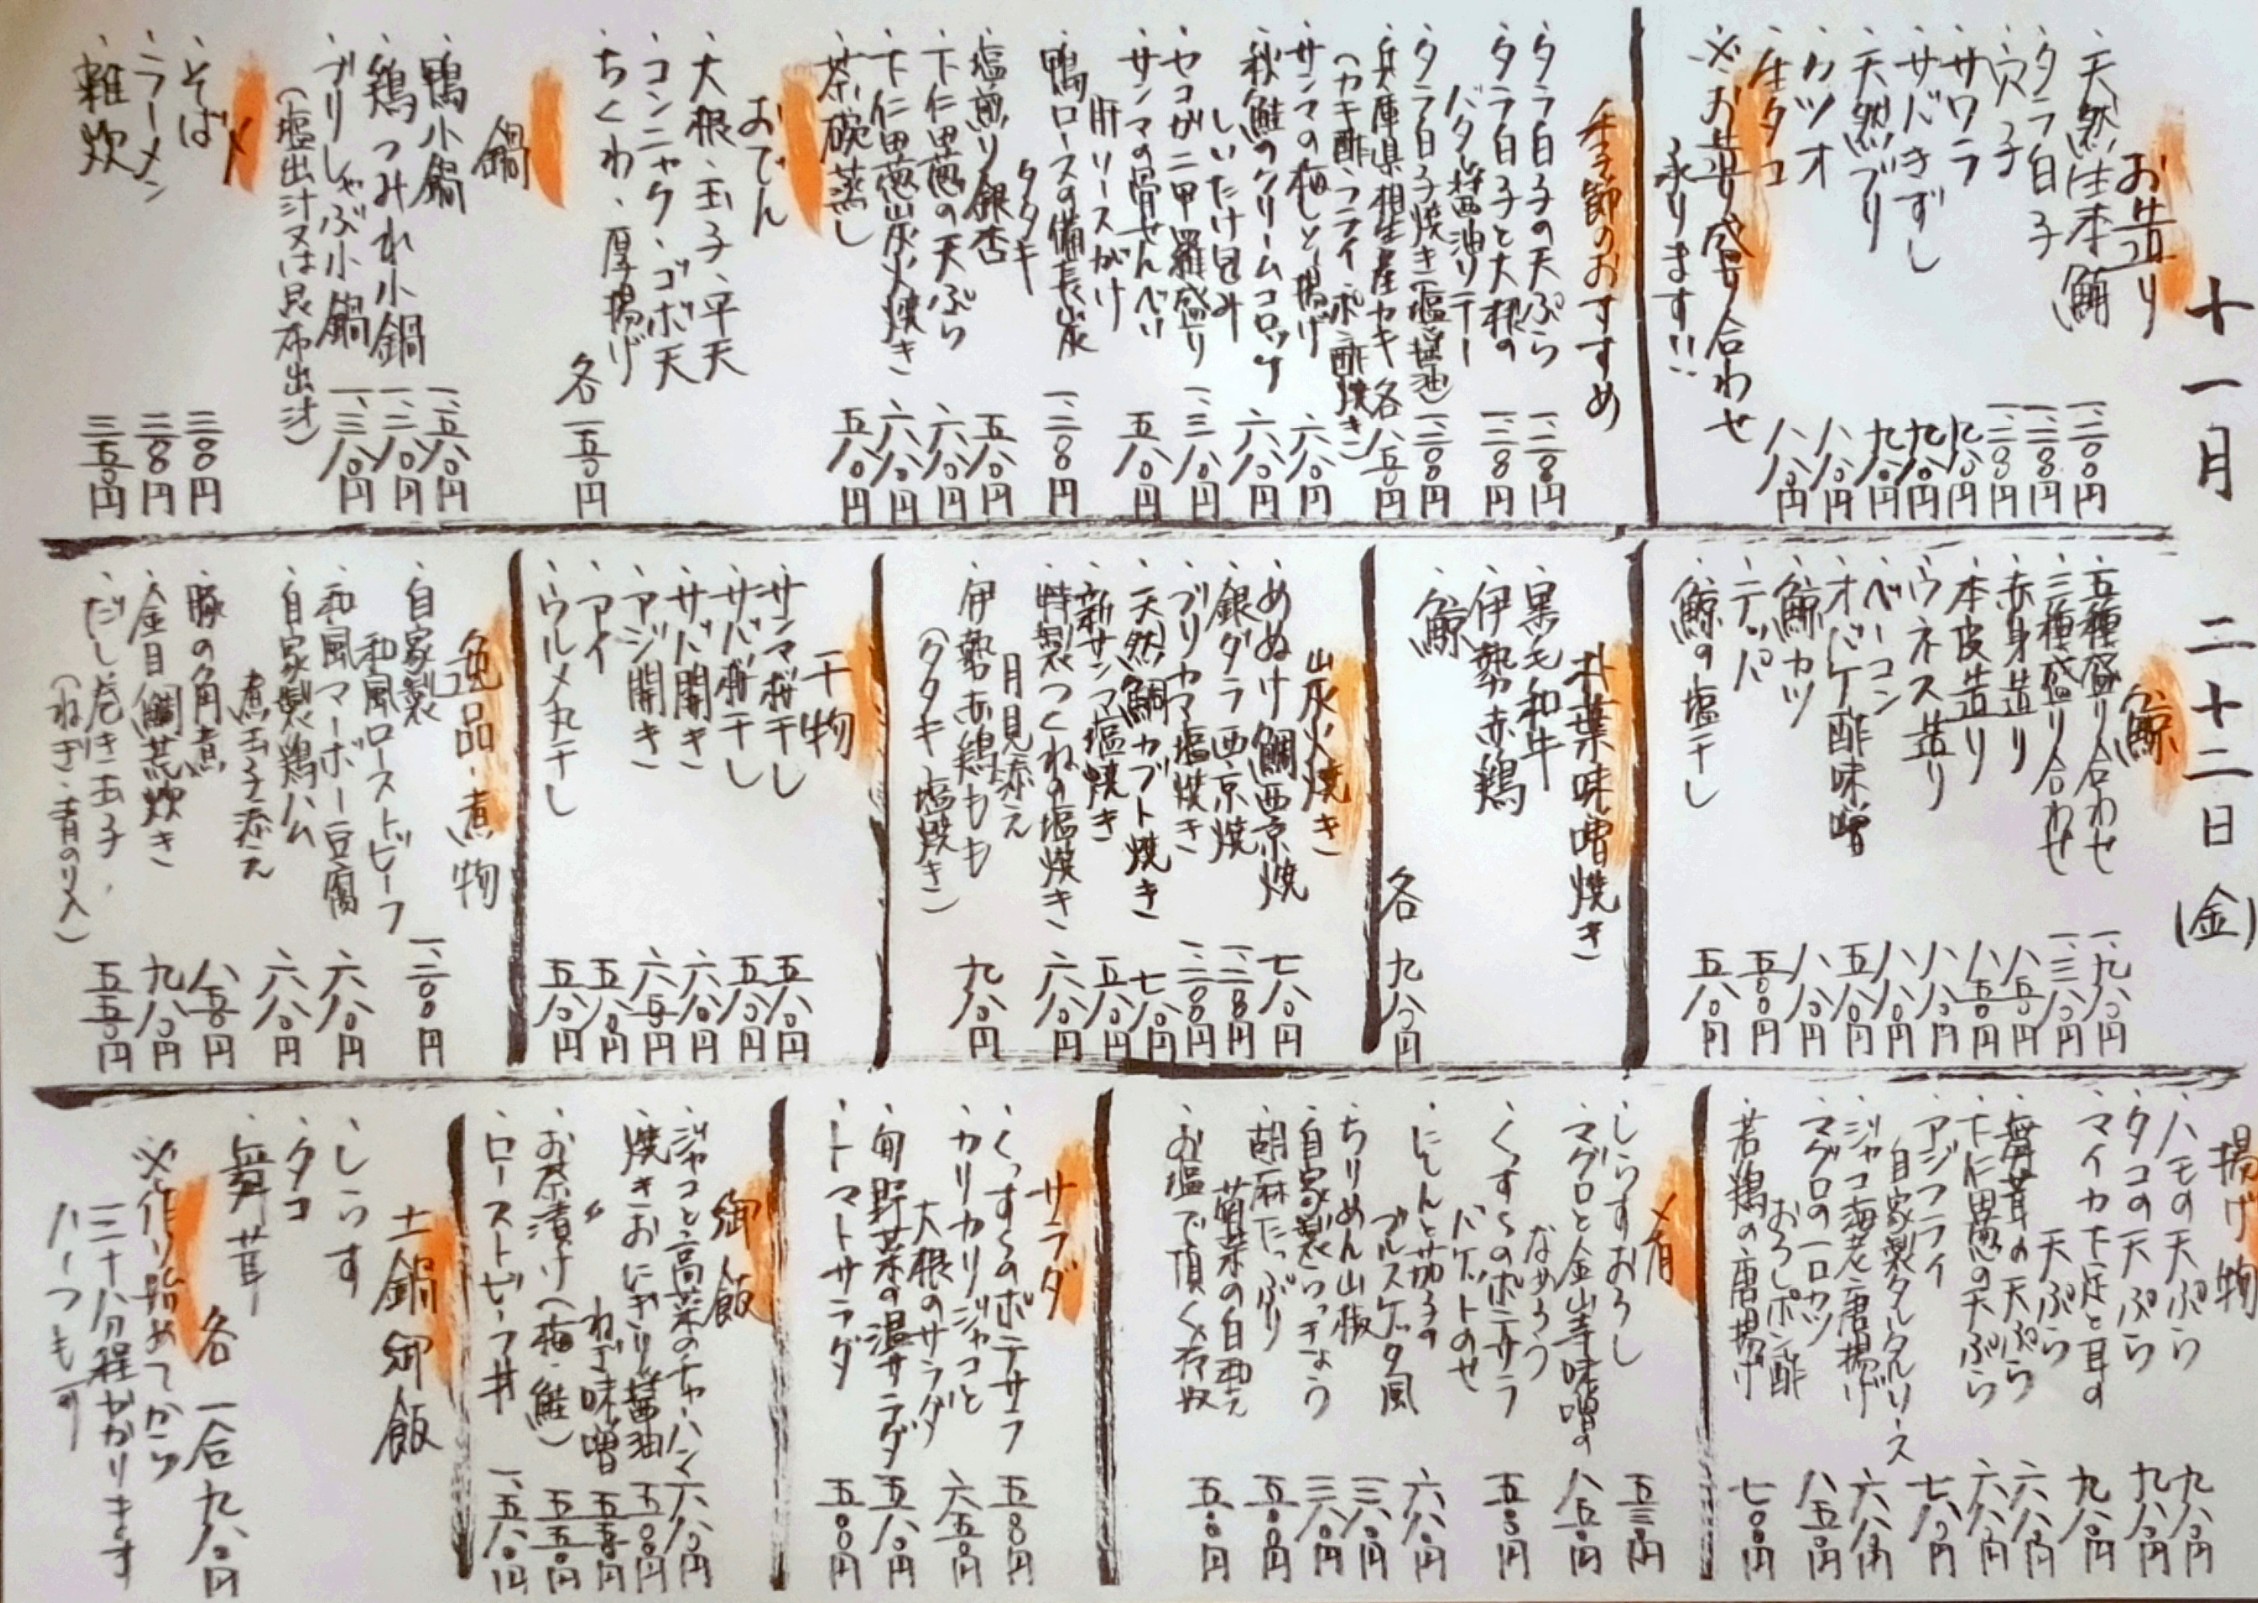 十一月二十二日(金)
お造り
・天然生本鮪 一、二〇〇円
・タラ白子 一、二八〇円
・穴子 一、二八〇円
・サワラ 九八〇円
・サバきずし 九八〇円
・天然ブリ 九八〇円
・カツオ 八八〇円
・生タコ 八八〇円
※お造り盛り合わせ
承ります!!
季節のおすすめ
・タラ白子の天ぷら 一、二八〇円
・タラ白子と大根の
バター醤油ソテー 一、三八〇円
・タラ白子焼き(塩・醤油) 一、二〇〇円
・兵庫県相生産カキ 各八五〇円
(カキ酢・フライ・ポン酢焼き)
・サンマの梅しそ揚げ 六八〇円
・秋鮭のクリームコロッケ
しいたけ包み 六八〇円
・セコガニ甲羅盛り 一、三八〇円
・サンマの骨せんべい
肝ソースがけ 五八〇円
・鴨ロースの備長炭
タタキ 一、二八〇円
・塩煎り銀杏 五八〇円
・下仁田葱の天ぷら 六八〇円
・下仁田葱炭火焼き 六八〇円
・茶碗蒸し 五八〇円
おでん
・大根・玉子・平天
・コンニャク・ゴボ天
・ちくわ・厚揚げ
各一五〇円
鍋
・鴨小鍋 一、五八〇円
・鶏つみれ小鍋 一、二八〇円
・ブリしゃぶ小鍋 一、三八〇円
(塩出汁又は昆布出汁)
〆
・そば 三〇〇円
・ラーメン 三〇〇円
・雑炊 三五〇円
鯨
・五種盛り合わせ 一、九八〇円
・三種盛り合わせ 一、三八〇円
・赤身造り 八五〇円
・本皮造り 八五〇円
・ウネス造り 八八〇円
・ベーコン 八八〇円
・オバケ酢味噌 五八〇円
・鯨カツ 八八〇円
・テッパ 五〇〇円
・鯨の塩干し 五八〇円
朴葉味噌焼き
・黒毛和牛
・伊勢赤鶏
・鯨
各九八〇円
炭火焼き
・めぬけ鯛西京焼 七八〇円
・銀ダラ西京焼 一、二八〇円
・ブリカマ塩焼き 一、二〇〇円
・天然鯛カブト焼き 七八〇円
・新サンマ塩焼き 五八〇円
・特製つくねの塩焼き
月見添え 六八〇円
・伊勢赤鶏もも
(タタキ・塩焼き) 九八〇円
干物
・サンマ桜干し 五八〇円
・サバ桜干し 五八〇円
・サバ開き 六八〇円
・アジ開き 六五〇円
・アイ 五八〇円
・ウルメ丸干し 五八〇円
逸品・煮物
・自家製
和風ローストビーフ 一、二〇〇円
・和風マーボー豆腐 六八〇円
・自家製鶏ハム
煮玉子添え 六八〇円
・豚の角煮 八五〇円
・金目鯛荒炊き 九八〇円
・だし巻き玉子 五五〇円
(ねぎ・青のり入)
揚げ物
・ハモの天ぷら 九八〇円
・タコの天ぷら 九八〇円
・マイカ下足と耳の
天ぷら 九八〇円
・舞茸の天ぷら 六八〇円
・下仁田葱の天ぷら 六八〇円
・アジフライ
自家製タルタルソース 七八〇円
・ジャコ海老唐揚げ 六八〇円
・マグロの一口カツ
おろしポン酢 八五〇円
・若鶏の唐揚げ 七〇〇円
〆肴
・しらすおろし 五三〇円
・マグロと金山寺味噌の
なめろう 八五〇円
・くっすらのポテサラ
バケットのせ 五八〇円
・にしんと茄子の
ブルスケッタ風 六八〇円
・ちりめん山椒 三八〇円
・自家製らっきょう 三八〇円
・胡麻たっぷり
菊菜の白和え 五〇〇円
・お塩で頂く冷奴 五〇〇円
サラダ
・くっすらのポテサラ 五〇〇円
・カリカリジャコと
大根のサラダ 六五〇円
・旬野菜の温サラダ 五八〇円
・トマトサラダ 五〇〇円
御飯
・ジャコと高菜のチャーハン 六八〇円
・焼きおにぎり醤油 五〇〇円
〃 ねぎ味噌 五五〇円
・お茶漬け(梅・鮭) 五五〇円
・ローストビーフ丼 一、五八〇円
土鍋御飯
・しらす
・タコ
・舞茸
各一合九八〇円
※作り始めてから
三十八分程かかります